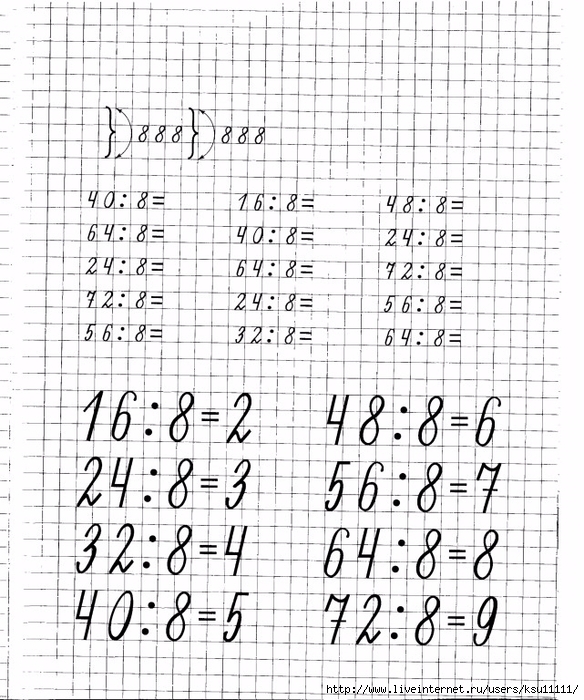 } ) 8 8 8 } ) 8 8 8
40 : 8 = 16 : 8 = 48 : 8 =
64 : 8 = 40 : 8 = 24 : 8 =
24 : 8 = 64 : 8 = 72 : 8 =
72 : 8 = 24 : 8 = 56 : 8 =
56 : 8 = 32 : 8 = 64 : 8 =
16 : 8 = 2 48 : 8 = 6
24 : 8 = 3 56 : 8 = 7
32 : 8 = 4 64 : 8 = 8
40 : 8 = 5 72 : 8 = 9
http://www.liveinternet.ru/users/ksu11111/